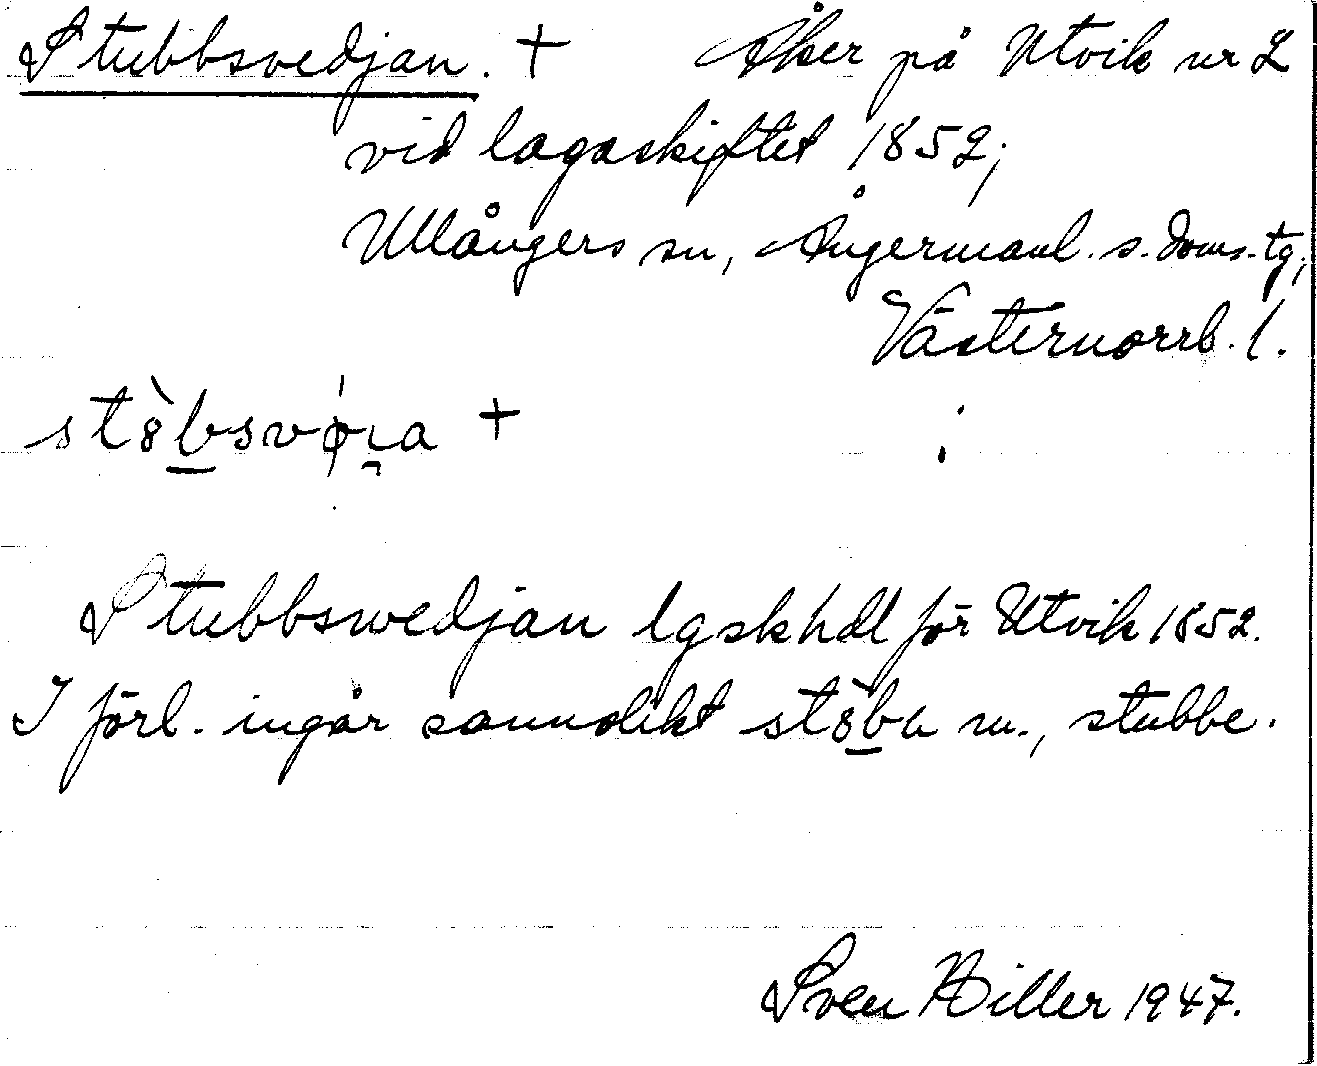 Stubbsvedjan. + Åker på Utvik nr 2
vid lagaskiftet 1852;
Ullångers sn, Ångermanl. s. doms.-tg,
Västernorrl. l.
+
Stubbswedjan lgskhdl för Utvik 1852.
I förl. ingår sannolikt m., stubbe.
Sven Hiller 1947.